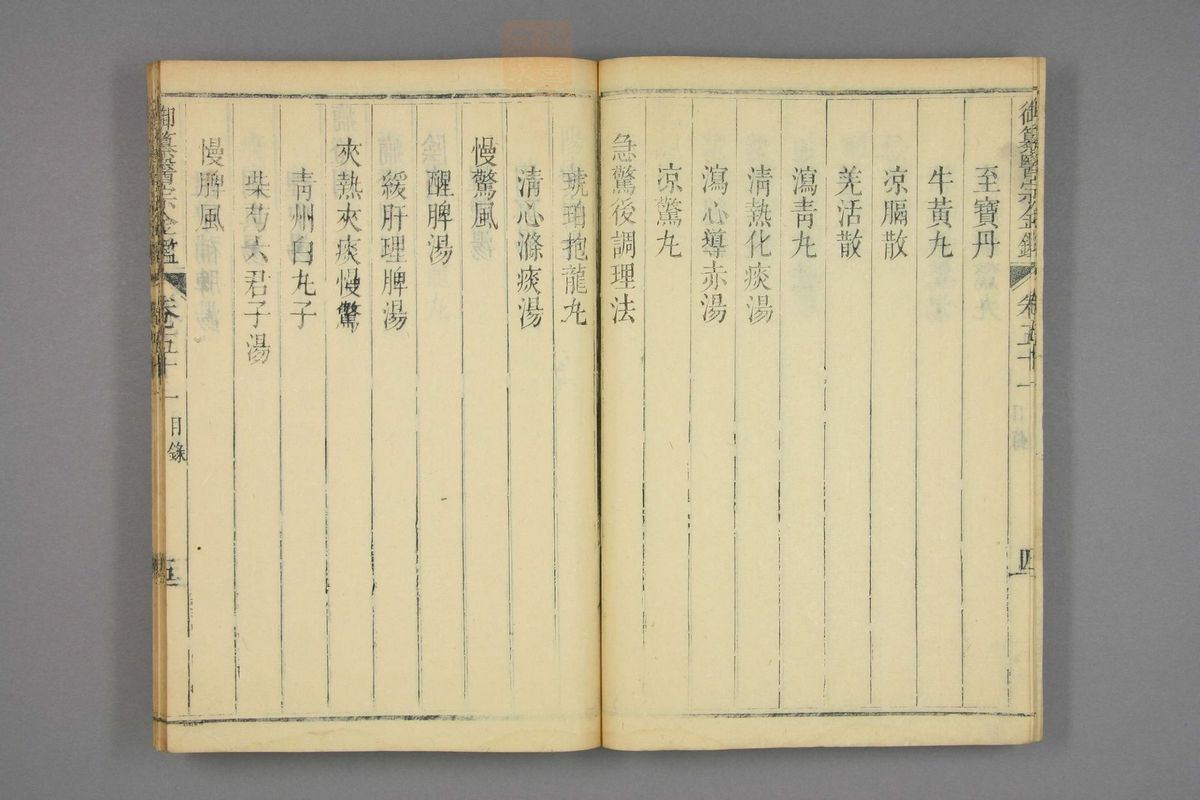 御纂醫宗金鑑 卷五十一 目錄 四
至寶丹
牛黃丸
凉膈散
羌活散
瀉青丸
清熱化痰湯
瀉心導赤湯
凉驚丸
急驚後調理法
琥珀抱龍丸
清心滌痰湯
慢驚風
醒脾湯
緩肝理脾湯
夾熱夾痰慢驚
青州白丸子
柴芍六君子湯
慢脾風
御纂醫宗金鑑 卷五十一 目錄 五